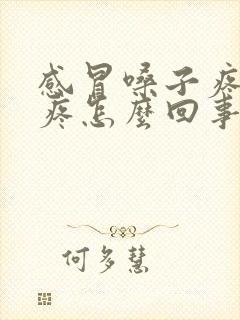 感冒嗓子疼
疼怎麼回事
何多慧